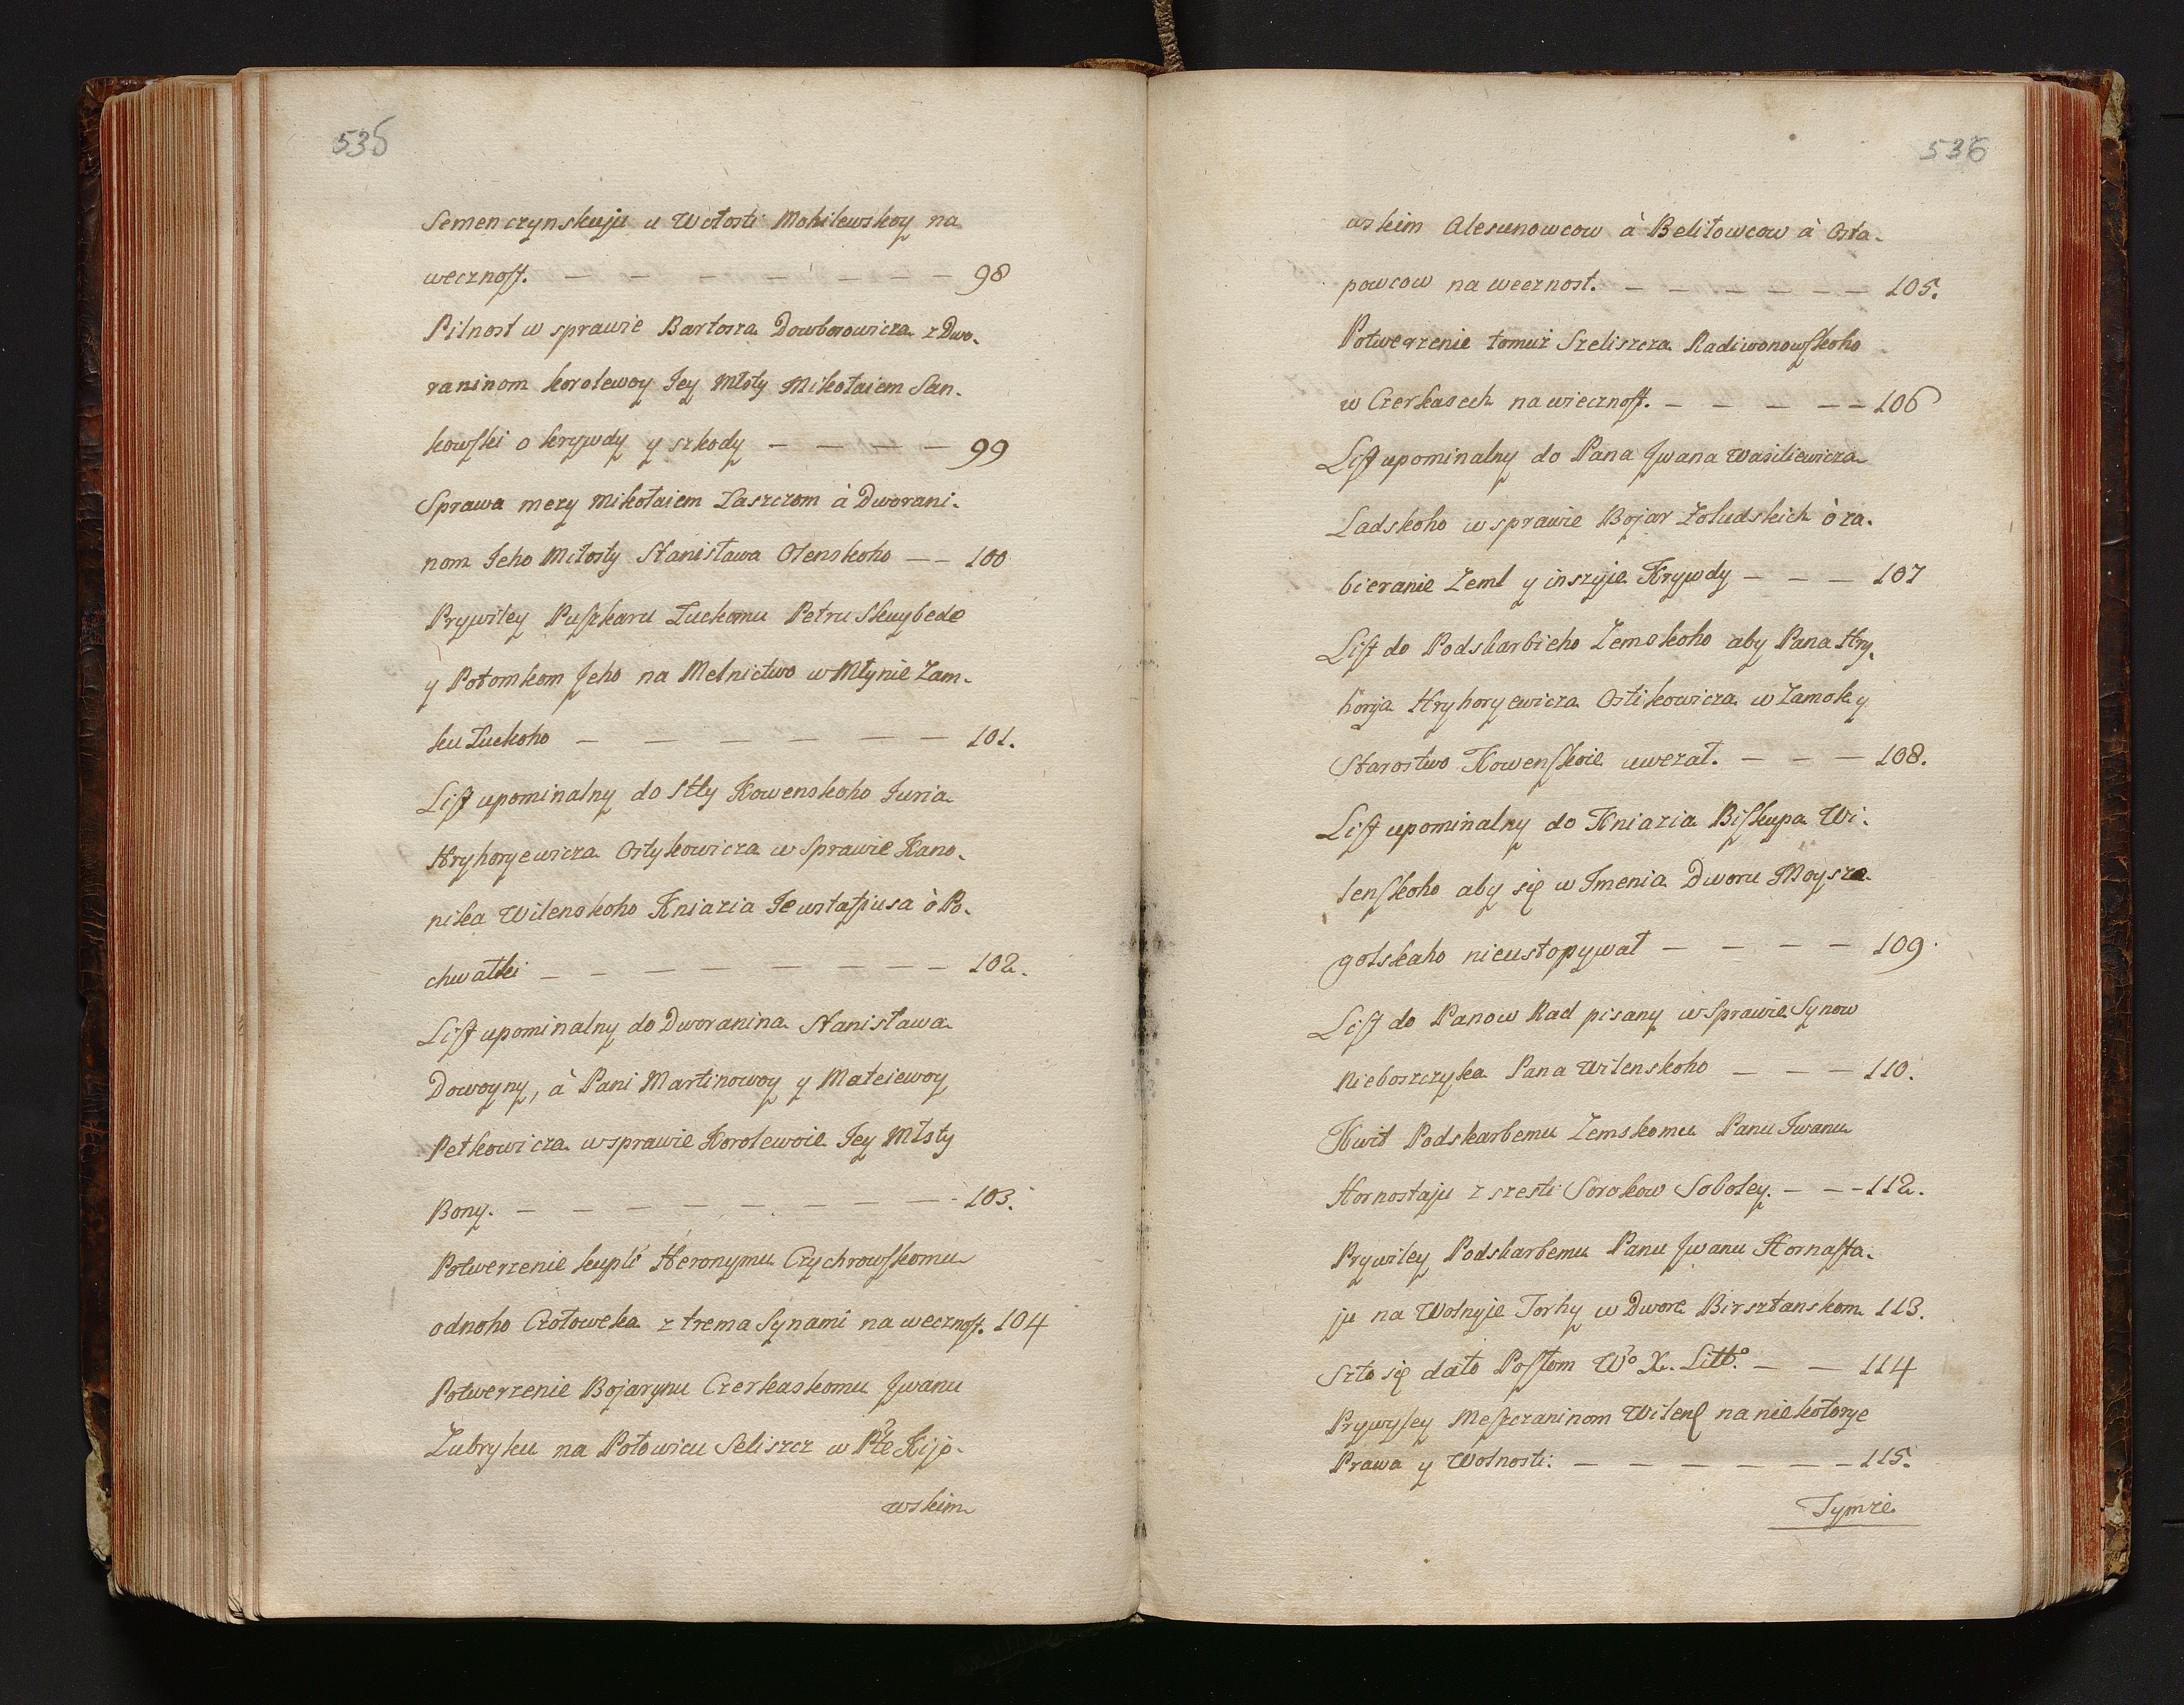 535
Semenczynskuju u Wołosti Mohilewskoy na
wecznosť. — — — — — — — 98
Pilnost w sprawie Bartosza Dowborowicza z Dwo-
raninom korolewoy Jey Młsty Mikołaiem San-
kowski o krywdy y szkody — — — — 99
Sprawa mezy Mikołaiem Łaszczom à Dworani-
nom Jeho Miłosty Stanisława Olenskoho — — 100
Prywiley Puszkaru Łuckomu Petru Skuybede
y Potomkom Jeho na Melnictwo w Młynie Zam-
ku Łuckoho — — — — — — — 101.
List upominalny do Stty Kowenskoho Juria
Hryhoryewicza Ostykowicza w Sprawie Kano-
nika Wilenskoho Kniazia Jewstafiusa ò Po-
chwałki — — — — — — — — 102.
List upominalny do Dworanina Stanisława
Dowoyny, à Pani Martinowoy y Mateiewoy
Petkowicza w sprawie Korolewoie Jey Młsty
Bony. — — — — — — — — 103.
Potwerzenie kupli Heronymu Czychrowskomu
odnoho Czołoweka z trema Synami na wecznosť. 104
Potwerzenie Bojarynu Czerkaskomu Jwanu
Zubryku na Połowicu Seliszcz w Pťe Kijo-
wskim
536
wskim Alesunowcow à Beliłowcow à Osta-
powcow na wecznost. — — — — — 105.
Potwerzenie tomuż Szeliszcza Radiwonowskoho
w Czerkasech na wiecznosť. — — — — — 106
List upominalny do Pana Jwana Wasiliewicza
Ladskoho w sprawie Bojar Żoludskich ò za-
bieranie Zeml y inszyie Krywdy — — — 107
List do Podskarbieho Zemskoho aby Pana Hry-
horja Hryhoryewicza Ostikowicza w Zamok y
Starostwo Kowenskoie uwezał. — — — 108.
List upominalny do Kniazia Biskupa Wi-
lenskoho aby się w Jmenia Dworu Moysza-
golskaho nieustopywał — — — — 109.
List do Panow Rad pisany w Sprawie Synow
Nieboszczyka Pana Wilenskoho — — — 110.
Kwit Podskarbemu Zemskomu Panu Jwanu
Hornostaju z szesti Sorokow Soboley. — — - 112.
Prywiley Podskarbemu Panu Jwanu Hornasta-
ju na Wolnyie Torhy w Dwore Birsztanskom 113.
Szto się dało Posłom Wo X. Litto. — — 114
Prywyley Meszczaninom Wilens na niekotorye
Prawa y Wolnosti. — — — — — — 115.
Tymże